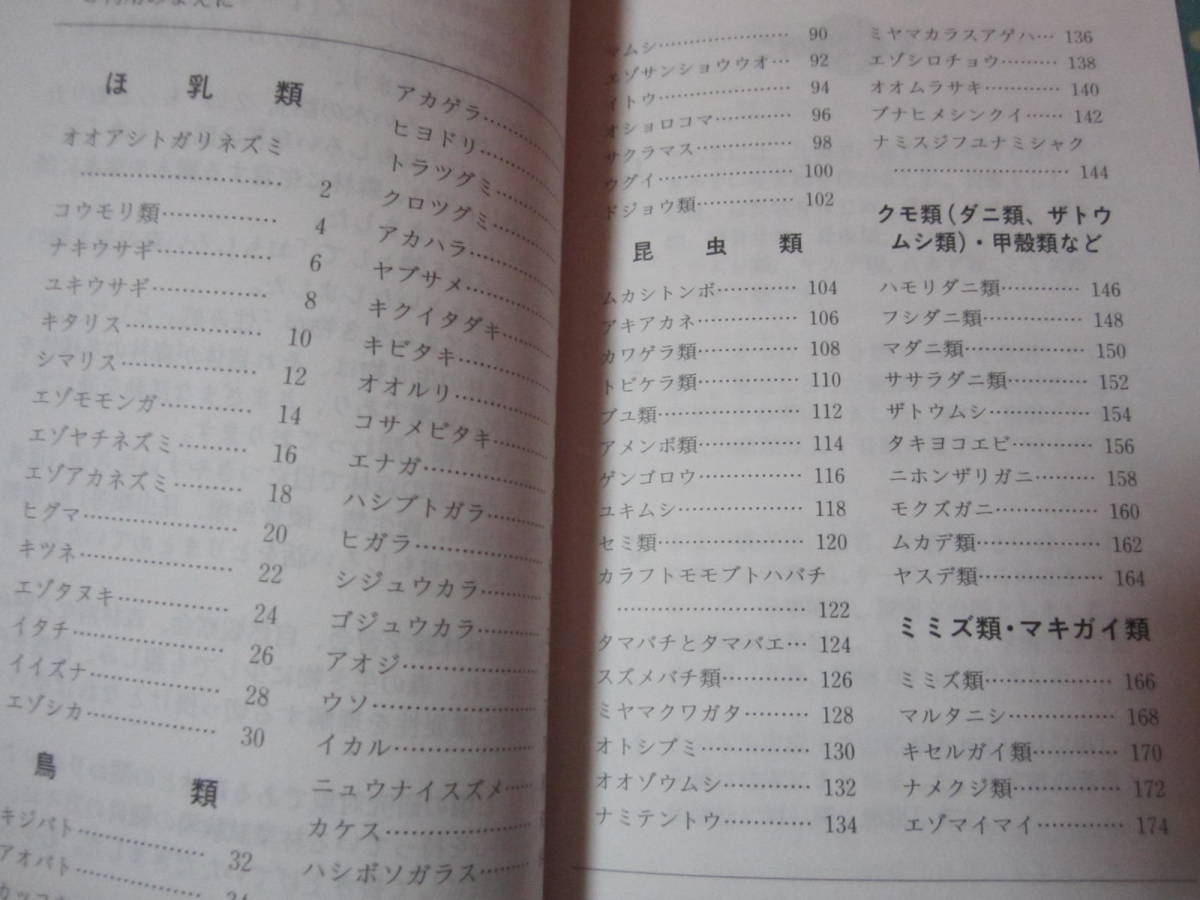 ほ乳類
オオアシトガリネズミ
…………………… 2
コウモリ類………… 4
ナキウサギ………… 6
ユキウサギ………… 8
キタリス………… 10
シマリス………… 12
エゾモモンガ……… 14
エゾヤチネズミ…… 16
エゾアカネズミ…… 18
ヒグマ…………… 20
キツネ…………… 22
エゾタヌキ……… 24
イタチ…………… 26
イイズナ………… 28
エゾシカ………… 30
鳥類
キジバト………… 32
アオバト…………
アカゲラ…………
ヒヨドリ…………
トラツグミ………
クロツグミ………
アカハラ…………
ヤブサメ…………
キクイタダキ……
キビタキ…………
オオルリ…………
コサメビタキ……
エナガ……………
ハシブトガラ……
ヒガラ……………
シジュウカラ……
ゴジュウカラ……
アオジ……………
ウソ………………
イカル……………
ニュウナイスズメ…
カケス……………
ハシボソガラス……
マムシ…………… 90
エゾサンショウウオ… 92
イトウ…………… 94
オショロコマ……… 96
サクラマス……… 98
ウグイ…………… 100
ドジョウ類……… 102
昆虫類
ムカシトンボ……… 104
アキアカネ……… 106
カワゲラ類……… 108
トビケラ類……… 110
ブユ類…………… 112
アメンボ類……… 114
ゲンゴロウ……… 116
ユキムシ………… 118
セミ類…………… 120
カラフトモモブトハバチ
…………………… 122
タマバチとタマバエ… 124
スズメバチ類……… 126
ミヤマクワガタ…… 128
オトシブミ……… 130
オオゾウムシ……… 132
ナミテントウ……… 134
ミヤマカラスアゲハ… 136
エゾシロチョウ…… 138
オオムラサキ……… 140
ブナヒメシンクイ…… 142
ナミスジフユナミシャク
…………………… 144
クモ類(ダニ類、ザトウ
ムシ類)・甲殻類など
ハモリダニ類……… 146
フシダニ類……… 148
マダニ類………… 150
ササラダニ類……… 152
ザトウムシ……… 154
タキヨコエビ……… 156
ニホンザリガニ…… 158
モクズガニ……… 160
ムカデ類………… 162
ヤスデ類………… 164
ミミズ類・マキガイ類
ミミズ類………… 166
マルタニシ……… 168
キセルガイ類……… 170
ナメクジ類……… 172
エゾマイマイ……… 174